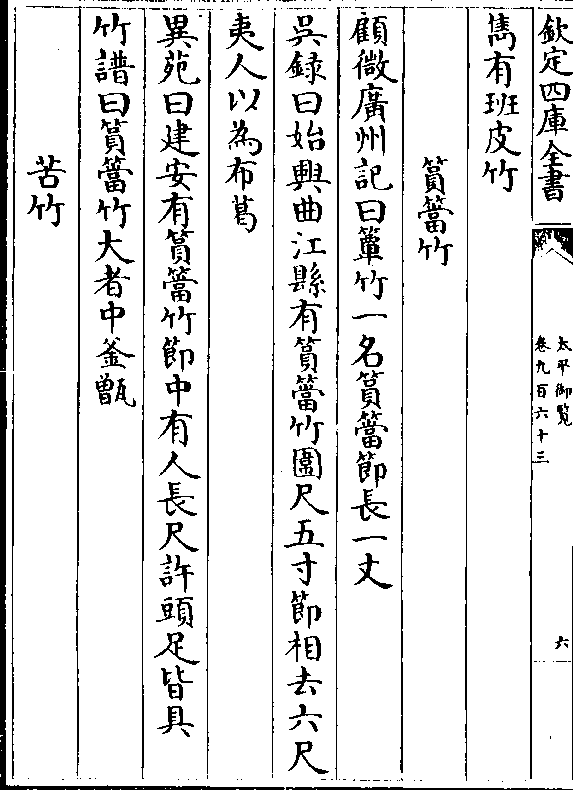 欽定四庫全書
太平御覽
卷九百六十三
六
雋有班皮竹
篔簹竹
顧微廣州記曰簞竹一名篔簹節長一丈
吳錄曰始興曲江縣有篔簹竹圍尺五寸節相去六尺
夷人以為布葛
異苑曰建安有篔簹竹節中有人長尺許頭足皆具
竹譜曰篔簹竹大者中釜甑
苦竹